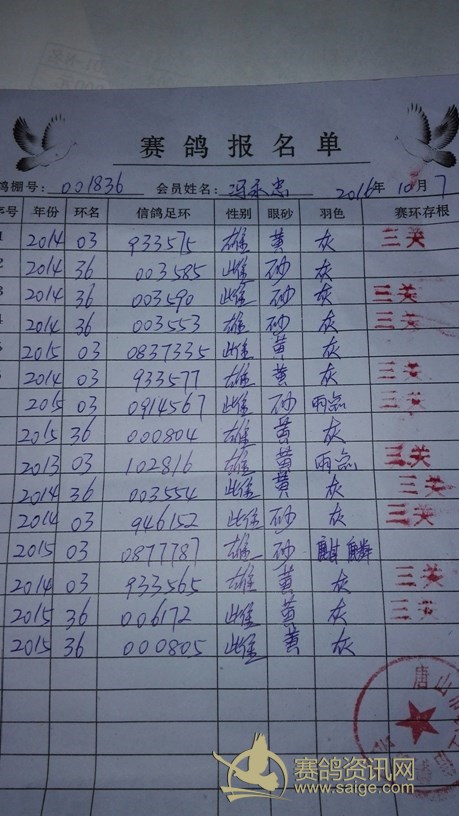 赛鸽报名单
鸽棚号: 001836 会员姓名: 冯永忠 2016年 10月 7
序号 年份 环名 信鸽足环 性别 眼砂 羽色 赛环存根
1 2014 03 933575 雄 黄 灰 三关
2 2014 36 003585 雌 砂 灰
3 2014 36 003590 雌 砂 灰 三关
4 2014 36 003553 雄 砂 灰 三关
2015 03 0837335 雌 黄 灰
2014 03 933577 雄 黄 灰 三关
2015 03 0914567 雌 砂 雨点 三关
2015 36 000804 雄 黄 灰
2013 03 102816 雄 黄 雨点 三关
2014 36 003554 雌 黄 灰 三关
2014 03 946152 雌 砂 灰 三关
2015 03 0877787 雄 砂 麒麟
2014 03 933565 雄 黄 灰 三关
2015 36 006172 雌 黄 灰 三关
2015 36 000805 雌 黄 灰
唐山市
赛鸽资讯网
www.saige.com